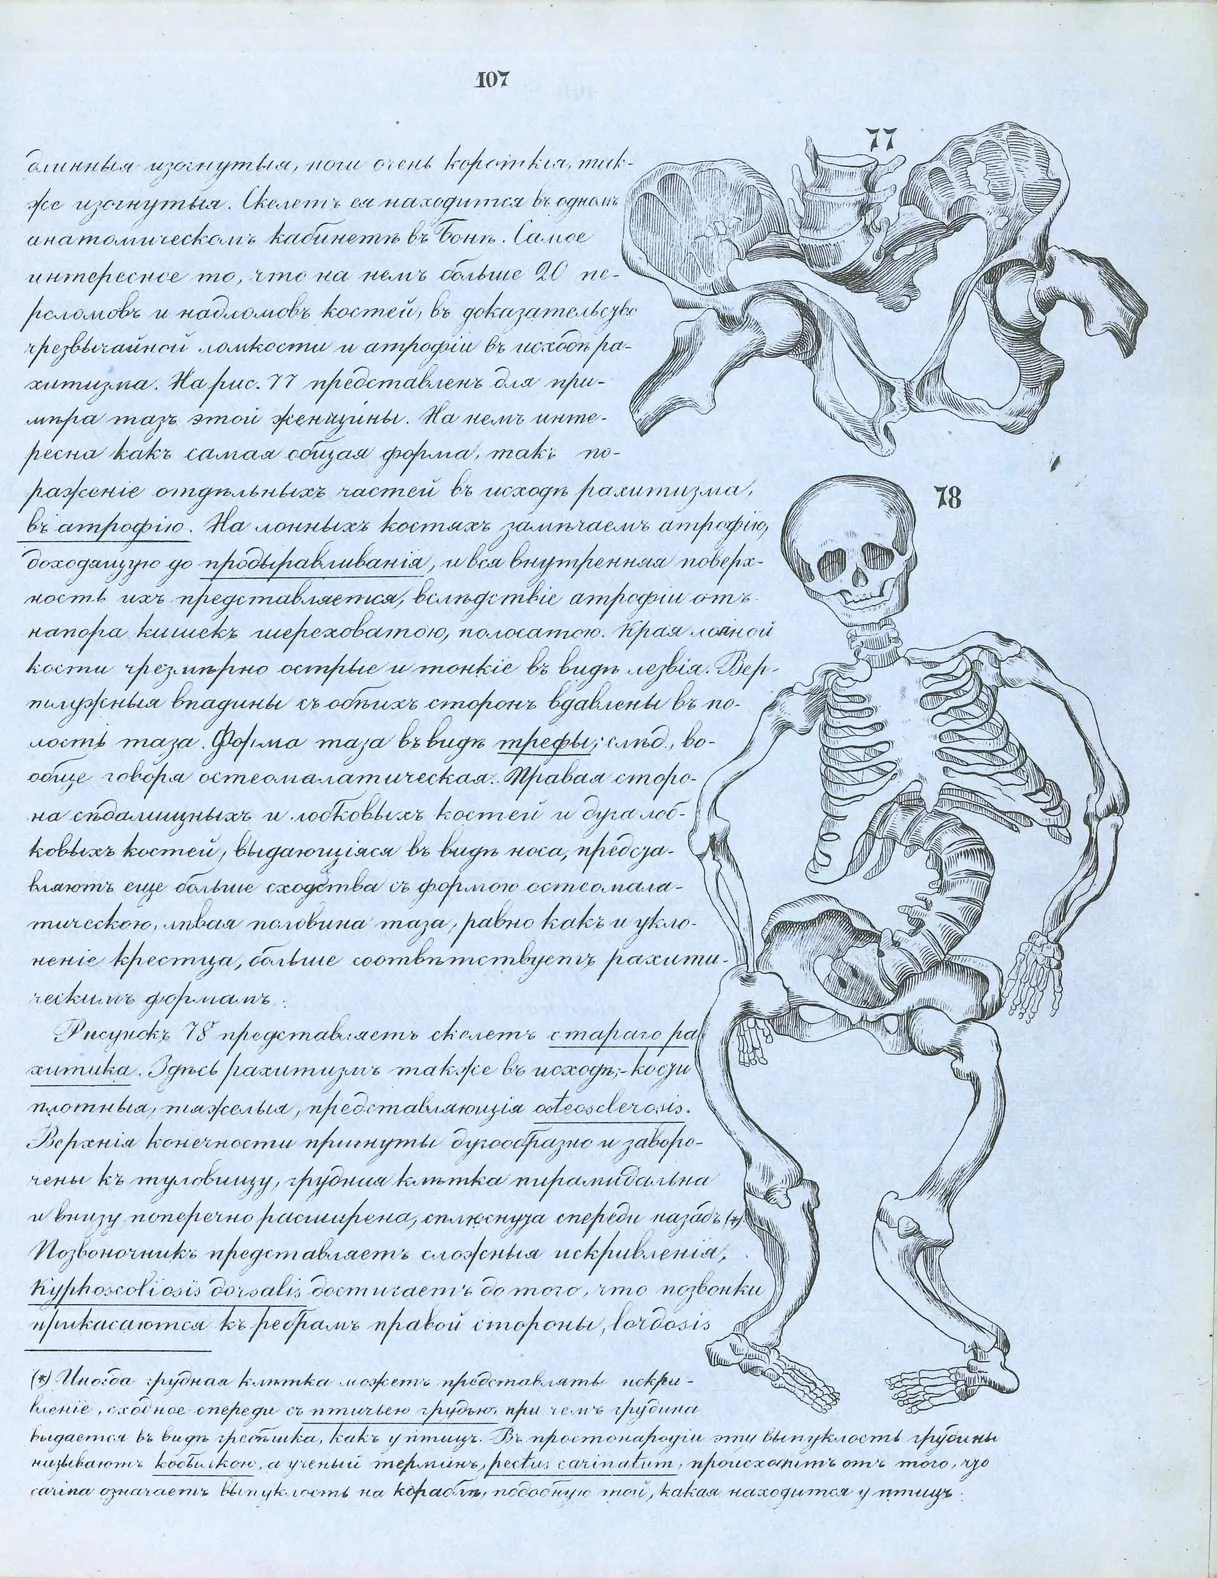 107
77
длинныя изогнутыя, ноги очень короткія, так-
же изогнутыя. Скелетъ ея находится въ одномъ
анатомическомъ кабинетѣ въ Боннѣ. Самое
интересное то, что на немъ больше 20 пе-
реломовъ и надломовъ костей, въ доказательство
чрезвычайной ломкости и атрофіи въ исходѣ ра-
хитизма. На рис. 77 представленъ для при-
мѣра тазъ этой женщины. На немъ инте-
ресна какъ самая общая форма, такъ по-
раженіе отдѣльныхъ частей въ исходѣ рахитизма,
78
въ атрофію. На лонныхъ костяхъ замѣчаемъ атрофію,
доходящую до продыравливанія, и вся внутренняя поверх-
ность ихъ представляется, вслѣдствіе атрофіи отъ
напора кишекъ шероховатою, полосатою. Края лонной
кости чрезмѣрно острые и тонкіе въ видѣ лезвія. Вер-
тлужныя впадины съ обѣихъ сторонъ вдавлены въ по-
лость таза. Форма таза въ видѣ трефы, слѣд., во-
обще говоря остеомалатическая. Правая сторо-
на сѣдалищныхъ и лобковыхъ костей и дуга лоб-
ковыхъ костей, выдающіяся въ видѣ носа, предста-
вляютъ еще больше сходства съ формою остеомала-
тическою, лѣвая половина таза, равно какъ и укло-
неніе крестца, больше соотвѣтствуетъ рахити-
ческимъ формамъ.
Рисунокъ 78 представляетъ скелетъ стараго ра
хитика. Здѣсь рахитизмъ также въ исходѣ;- кости
плотныя, тяжелыя, представляющія osteosclerosis.
Верхнія конечности пригнуты дугообразно и заворо-
чены къ туловищу, грудная клѣтка пирамидальна
и внизу поперечно расширена, сплюснута спереди назадъ (*).
Позвоночникъ представляетъ сложныя искривленія,
Kyphoscoliosis dorsalis достигаетъ до того, что позвонки
прикасаются къ ребрамъ правой стороны, lordosis
(*) Иногда грудная клѣтка можетъ представлять искри-
вленіе, сходное спереди съ птичьею грудью, при чемъ грудина
выдается въ видѣ гребешка, какъ у птицъ. Въ простонародіи эту выпуклость грудины
называютъ кобылкою, а ученый терминъ, pectus carinatum, происходитъ отъ того, что
carina означаетъ выпуклость на кораблѣ, подобную той, какая находится у птицъ.